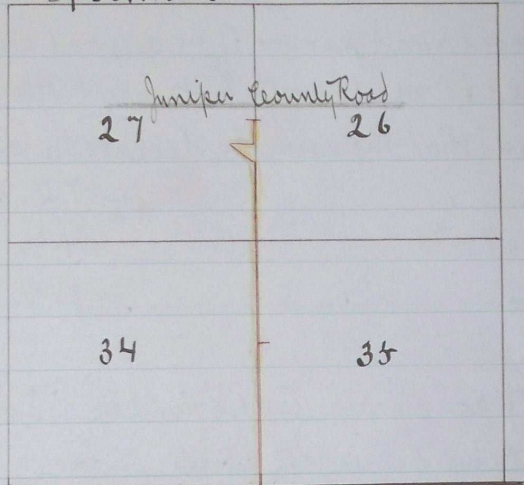 Juniper County Road
27 26
34 35